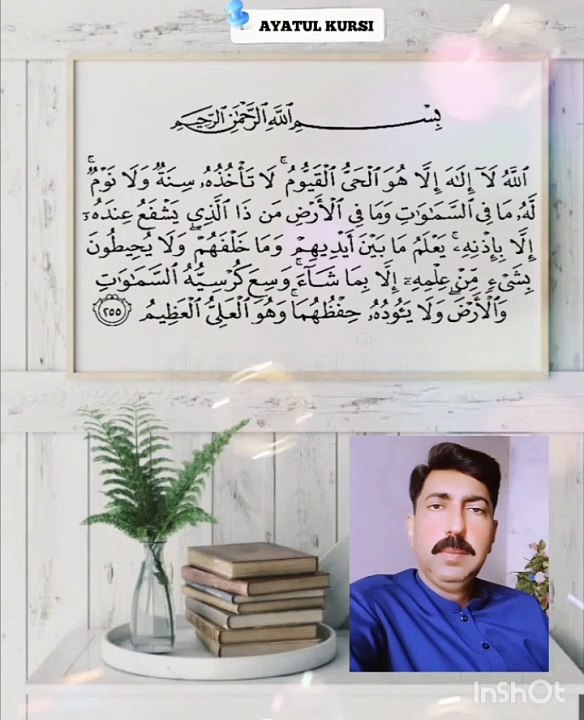 AYATUL KURSI
بِسْمِ اللَّهِ الرَّحْمَٰنِ الرَّحِيمِ
اللَّهُ لَا إِلَٰهَ إِلَّا هُوَ الْحَيُّ الْقَيُّومُ ۚ لَا تَأْخُذُهُ سِنَةٌ وَلَا نَوْمٌ ۚ
لَّهُ مَا فِي السَّمَاوَاتِ وَمَا فِي الْأَرْضِ مَن ذَا الَّذِي يَشْفَعُ عِندَهُ
إِلَّا بِإِذْنِهِ ۚ يَعْلَمُ مَا بَيْنَ أَيْدِيهِمْ وَمَا خَلْفَهُمْ ۖ وَلَا يُحِيطُونَ
بِشَيْءٍ مِّنْ عِلْمِهِ إِلَّا بِمَا شَاءَ ۚ وَسِعَ كُرْسِيُّهُ السَّمَاوَاتِ
وَالْأَرْضَ ۖ وَلَا يَئُودُهُ حِفْظُهُمَا ۚ وَهُوَ الْعَلِيُّ الْعَظِيمُ ٢٥٥
InShOt